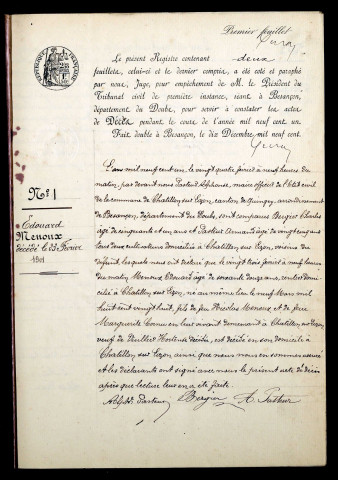 Premier feuillet
Le présent Registre contenant deux
feuillets, celui-ci et le dernier compris, a été coté et paraphé
par nous, Juge, pour empêchement de M. le Président du
Tribunal civil de première instance, séant à Besançon,
département du Doubs, pour servir à constater les actes
de Décès pendant le cours de l'année mil neuf cent un.
Fait double à Besançon, le dix Décembre mil neuf cent.
N° 1
Edouard
Menoux
décédé le 23 Février
1901
L'an mil neuf cent un, le vingt quatre février à neuf heures du
matin, par devant nous Pasteur Alphonse, maire officier de l'état civil
de la commune de Chatillon sur Lizon, canton de Quingey, arrondissement
de Besançon, département du Doubs, sont comparus Bergier Charles
âgé de cinquante et un ans et Pasteur Armand âgé de vingt cinq ans
tous deux cultivateurs domiciliés à Chatillon sur Lizon, voisins du
défunt, lesquels nous ont déclaré que le vingt trois février à neuf heures
du matin, Menoux Edouard âgé de soixante douze ans, rentier domi-
cilié à Chatillon sur Lizon, né au même lieu le neuf Mars mil
huit cent vingt huit, fils de feu Nicolas Menoux et de feue
Marguerite Cornu en leur vivant demeurant à Chatillon sur Lizon
veuf de Hortense décédée, est décédé en son domicile à
Chatillon sur Lizon ainsi que nous nous en sommes assuré
et les déclarants ont signé avec nous le présent acte de décès
après que lecture leur en a été faite.
Alph. Pasteur Bergier A. Pasteur